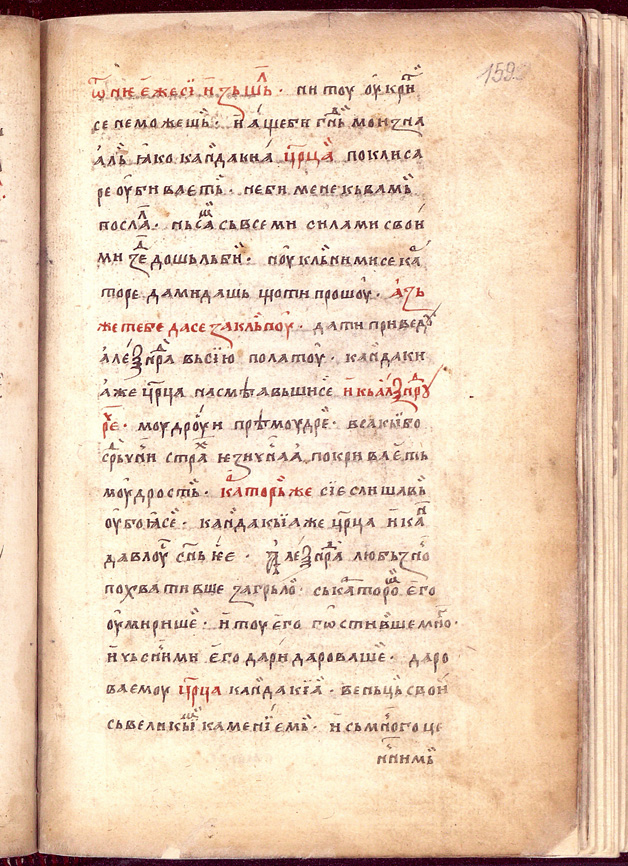 159
ѿ нѥ ѐже сі̀ и҆зьшⷧ҇ь · ни тоу оу҆крⷮи
се неможешь · и҆ аще би гⷭ҇нь мои зна
аль ꙗ҆ко кан̾дакиа црⷪ҇ца поклиса
ре оу҆бивлѥть · не би мене к вамь
послⷧа · нь сⷨа сь всеми силами свои
ми зⷣе дошьль би · ноу кльни ми се ка
торе да ми дашь що ти прошоу · азь
же тебе да се закльноу · да ти приведꙋ
алеѯⷣнра вь сїю полатоу · кан̾даки
а же црⷪ҇ца насмѣавьши се и҆ кь алеѯⷣнрꙋ
рⷱ҇е · моудроⷭ҇ и прѣмоудре · всакы бо
срⷣьчни страⷯ ѥзичнаа покривлѥть
моудрость · каторь же сїе слишавь
оубоꙗ се · кан̾дакыа же црⷪ҇ца и҆ каⷩ
давлоу сн҃ь ѥе · алеѯⷣнра любьзно
похвативше загрьло · сь каторⷨо ѐго
оу҆мирише · и҆ тоу ѐго гостивше мⷩ҇о ·
и҆ чьсними ѐго дари дароваше · даро
ва емоу црⷪ҇ца кан̾дакїа · веньць свои
сь великыⷨ каменїѐмь · и҆ сь много це
ннимь